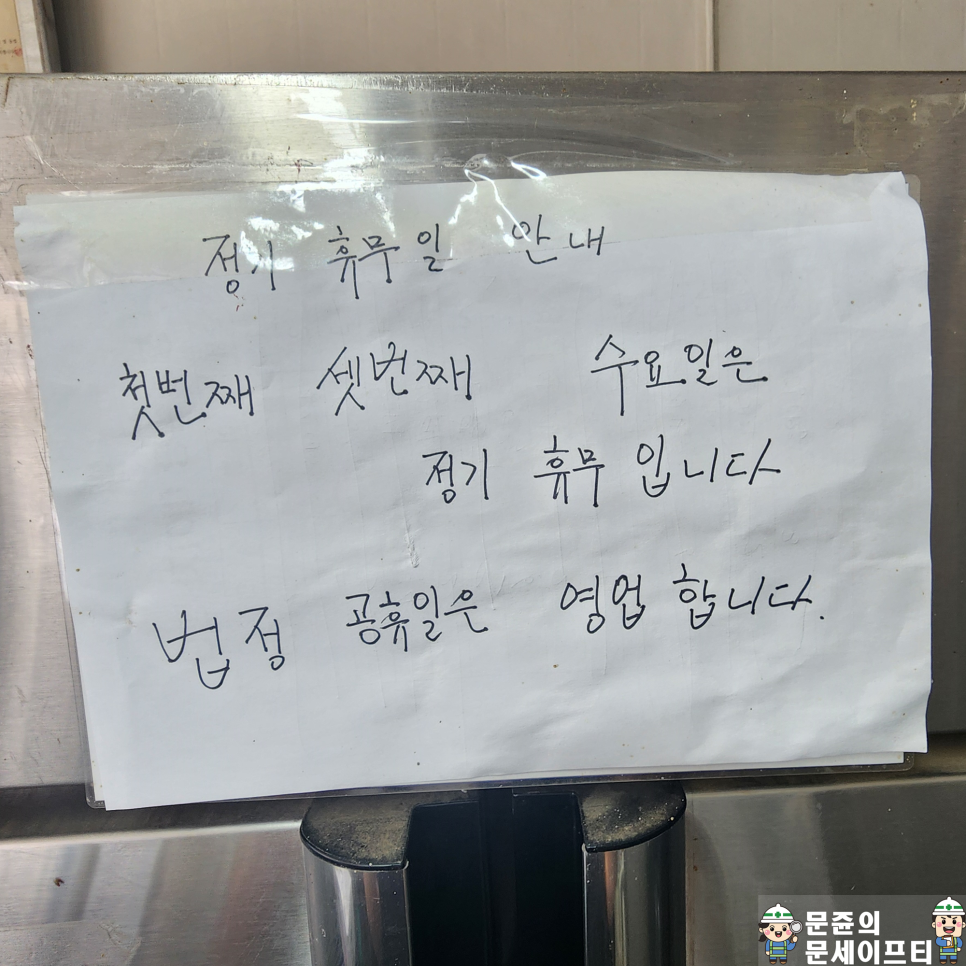 정기 휴무일 안내
첫번째 셋번째 수요일은
정기 휴무 입니다
법정 공휴일은 영업 합니다.
문쥰의
문세이프티